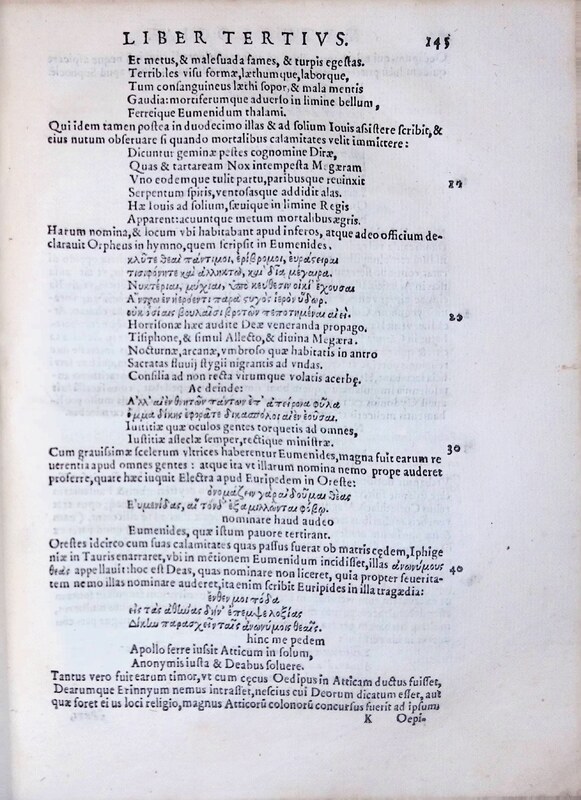 LIBER TERTIVS. 145
Et metus, & malesuada fames, & turpis egestas.
Terribiles visu formæ, læthumque, laborque,
Tum consanguineus læthi sopor, & mala mentis
Gaudia: mortiferumque aduerso in limine bellum,
Ferreique Eumenidum thalami.
Qui idem tamen postea in duodecimo illas & ad solium Iouis assistere scribit, &
eius nutum obseruare si quando mortalibus calamitates velit immittere:
Dicuntur geminæ pestes cognomine Diræ,
Quas & tartaream Nox intempesta Megæram
Vno eodemque tulit partu, paribusque reuinxit
Serpentum spiris, ventosasque addidit alas.
Hæ Iouis ad solium, sæuique in limine Regis
Apparent: acuuntque metum mortalibus ægris.
Harum nomina, & locum vbi habitabant apud inferos, atque adeo officium de-
clarauit Orpheus in hymno, quem scripsit in Eumenides.
κλῦτε θεαὶ πάντιμοι, ἐρίβρομοι, εὐάστειραι
τισιφόνητε καὶ ἀλληκτὼ, καὶ δῖα μέγαιρα.
Νυκτέριαι, μύχιαι, ὑπὸ κεύθεσιν οἰκί' ἔχουσαι
Ἄντρῳ ἐν ἠερόεντι παρὰ στυγὸς ἱερὸν ὕδωρ.
20
Horrisonæ hæc audite Deæ veneranda propago.
Tisiphone, & simul Allecto, & diuina Megæra.
Nocturnæ, arcanæ, vmbroso quæ habitatis in antro
Sacratas fluuij stygii nigrantis ad vndas.
Consilia ad non recta virumque volatis acerbę.
Ac deinde:
ὄμμα δίκης ἐφορᾶτε δικασπόλοι αἰὲν ἐοῦσαι.
Iustitiæ quæ oculos gentes torquetis ad omnes,
Iustitiæ asseclæ semper, rectique ministræ.
Cum grauissimæ scelerum vltrices haberentur Eumenides, magna fuit earum re 30
uerentia apud omnes gentes: atque ita vt illarum nomina nemo prope auderet
proferre, quare hæc iuquit Electra apud Euripedem in Oreste:
ὀνομάζειν γὰρ αἰδοῦμαι θεὰς
Εὐμενίδας, αἳ τόνδ' ἐξαμιλλῶνται φόβῳ.
nominare haud audeo
Eumenides, quæ istum pauore tertirant.
Orestes idcirco cum suas calamitates quas passus fuerat ob matris cędem, Iphige
niæ in Tauris enarraret, vbi in mẽtionem Eumenidum incidisset, illas ἀνωνύμους
θεὰς appellauit: hoc est Deas, quas nominare non liceret, quia propter seuerita- 40
tem nemo illas nominare auderet, ita enim scribit Euripides in illa tragædia:
ἔνθεν μοι πόδα
εἰς τὰς ἀθήνας δήγ' ἔπεμψε λοξίας
Δίκην παρασχεῖν ταῖς ἀνωνύμοις θεαῖς.
hinc me pedem
Apollo ferre iussit Atticum in solum,
Anonymis iusta & Deabus soluere.
Tantus vero fuit earum timor, vt cum cęcus Oedipus in Atticam ductus fuisset,
Dearumque Erinnyum nemus intrasset, nescius cui Deorum dicatum esset, aut
quæ foret ei us loci religio, magnus Atticorũ colonorũ concursus fuerit ad ipsum
K Oepi-